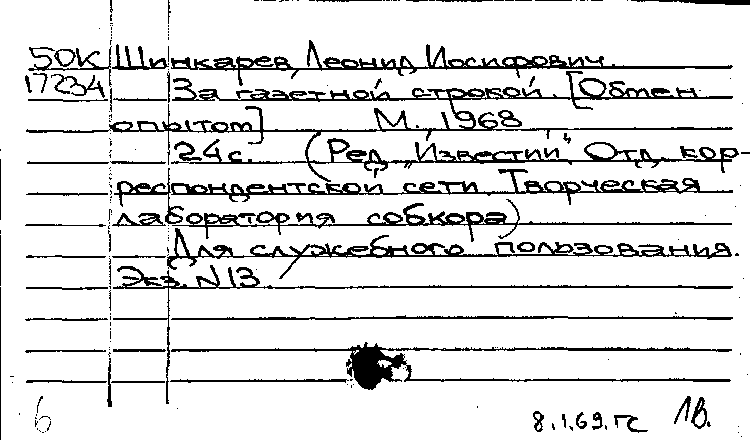 50К Шинкарев, Леонид Иосифович.
17234 За газетной строкой. [Обмен
опытом] М., 1968
24с. (Ред. "Известий". Отд. кор-
респондентской сети. Творческая
лаборатория собкора)
Для служебного пользования.
Экз. N 13.
6 8.1.69. гс 1В.